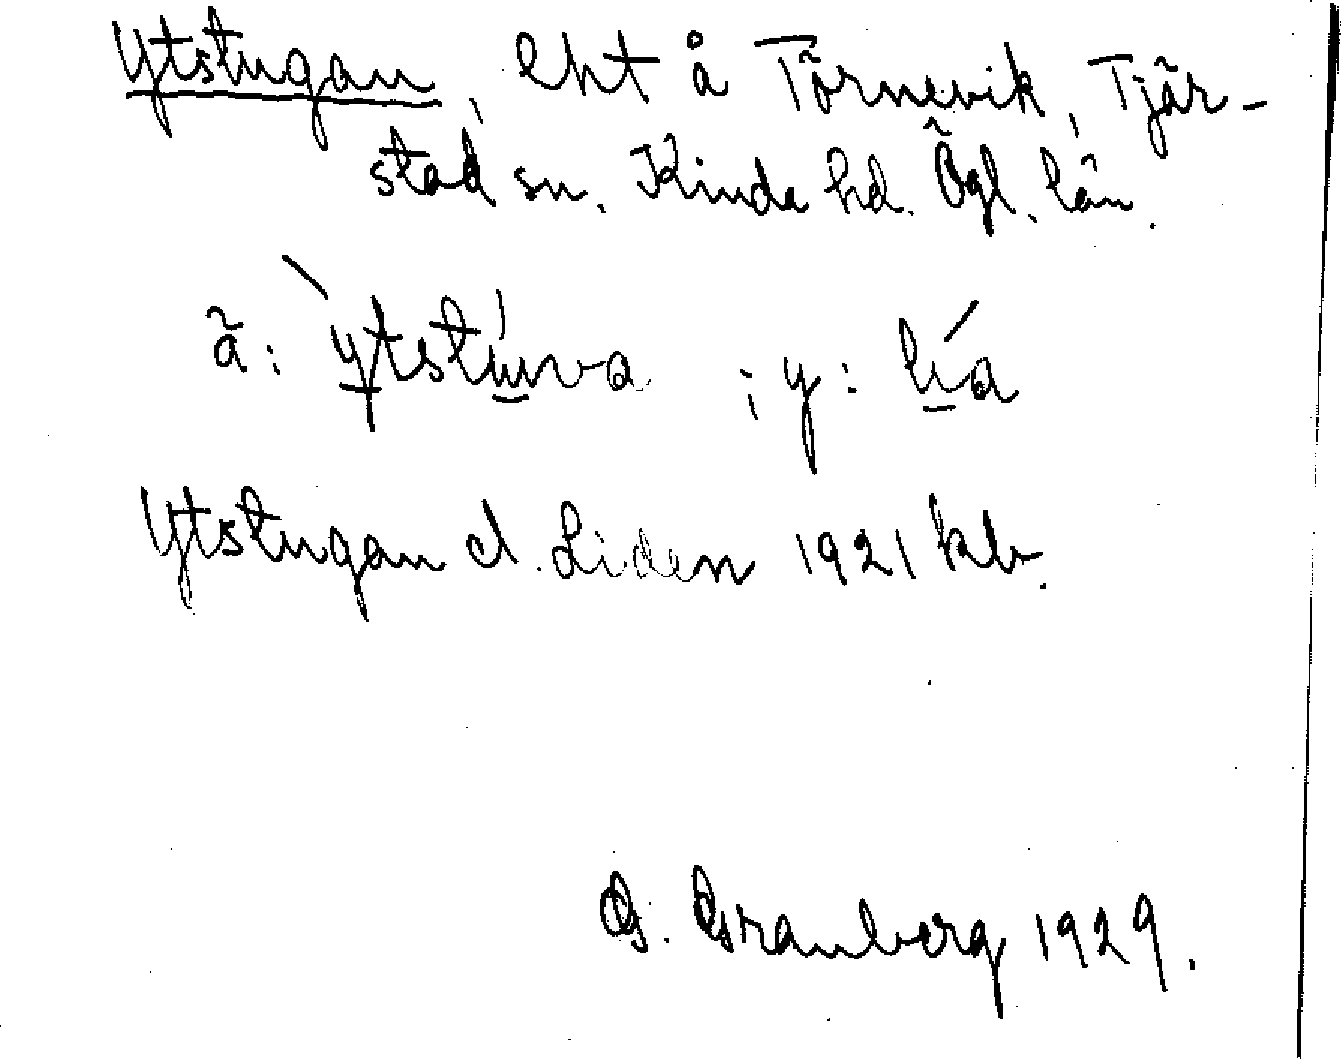 Ytstugan, lht å Törnevik, Tjär-
stad sn. Kinda hd. Ögl. län.
ä: ỳtstúwa ; y: lía
Ytstugan el. Liden 1921 kb.
G. Granberg 1929.